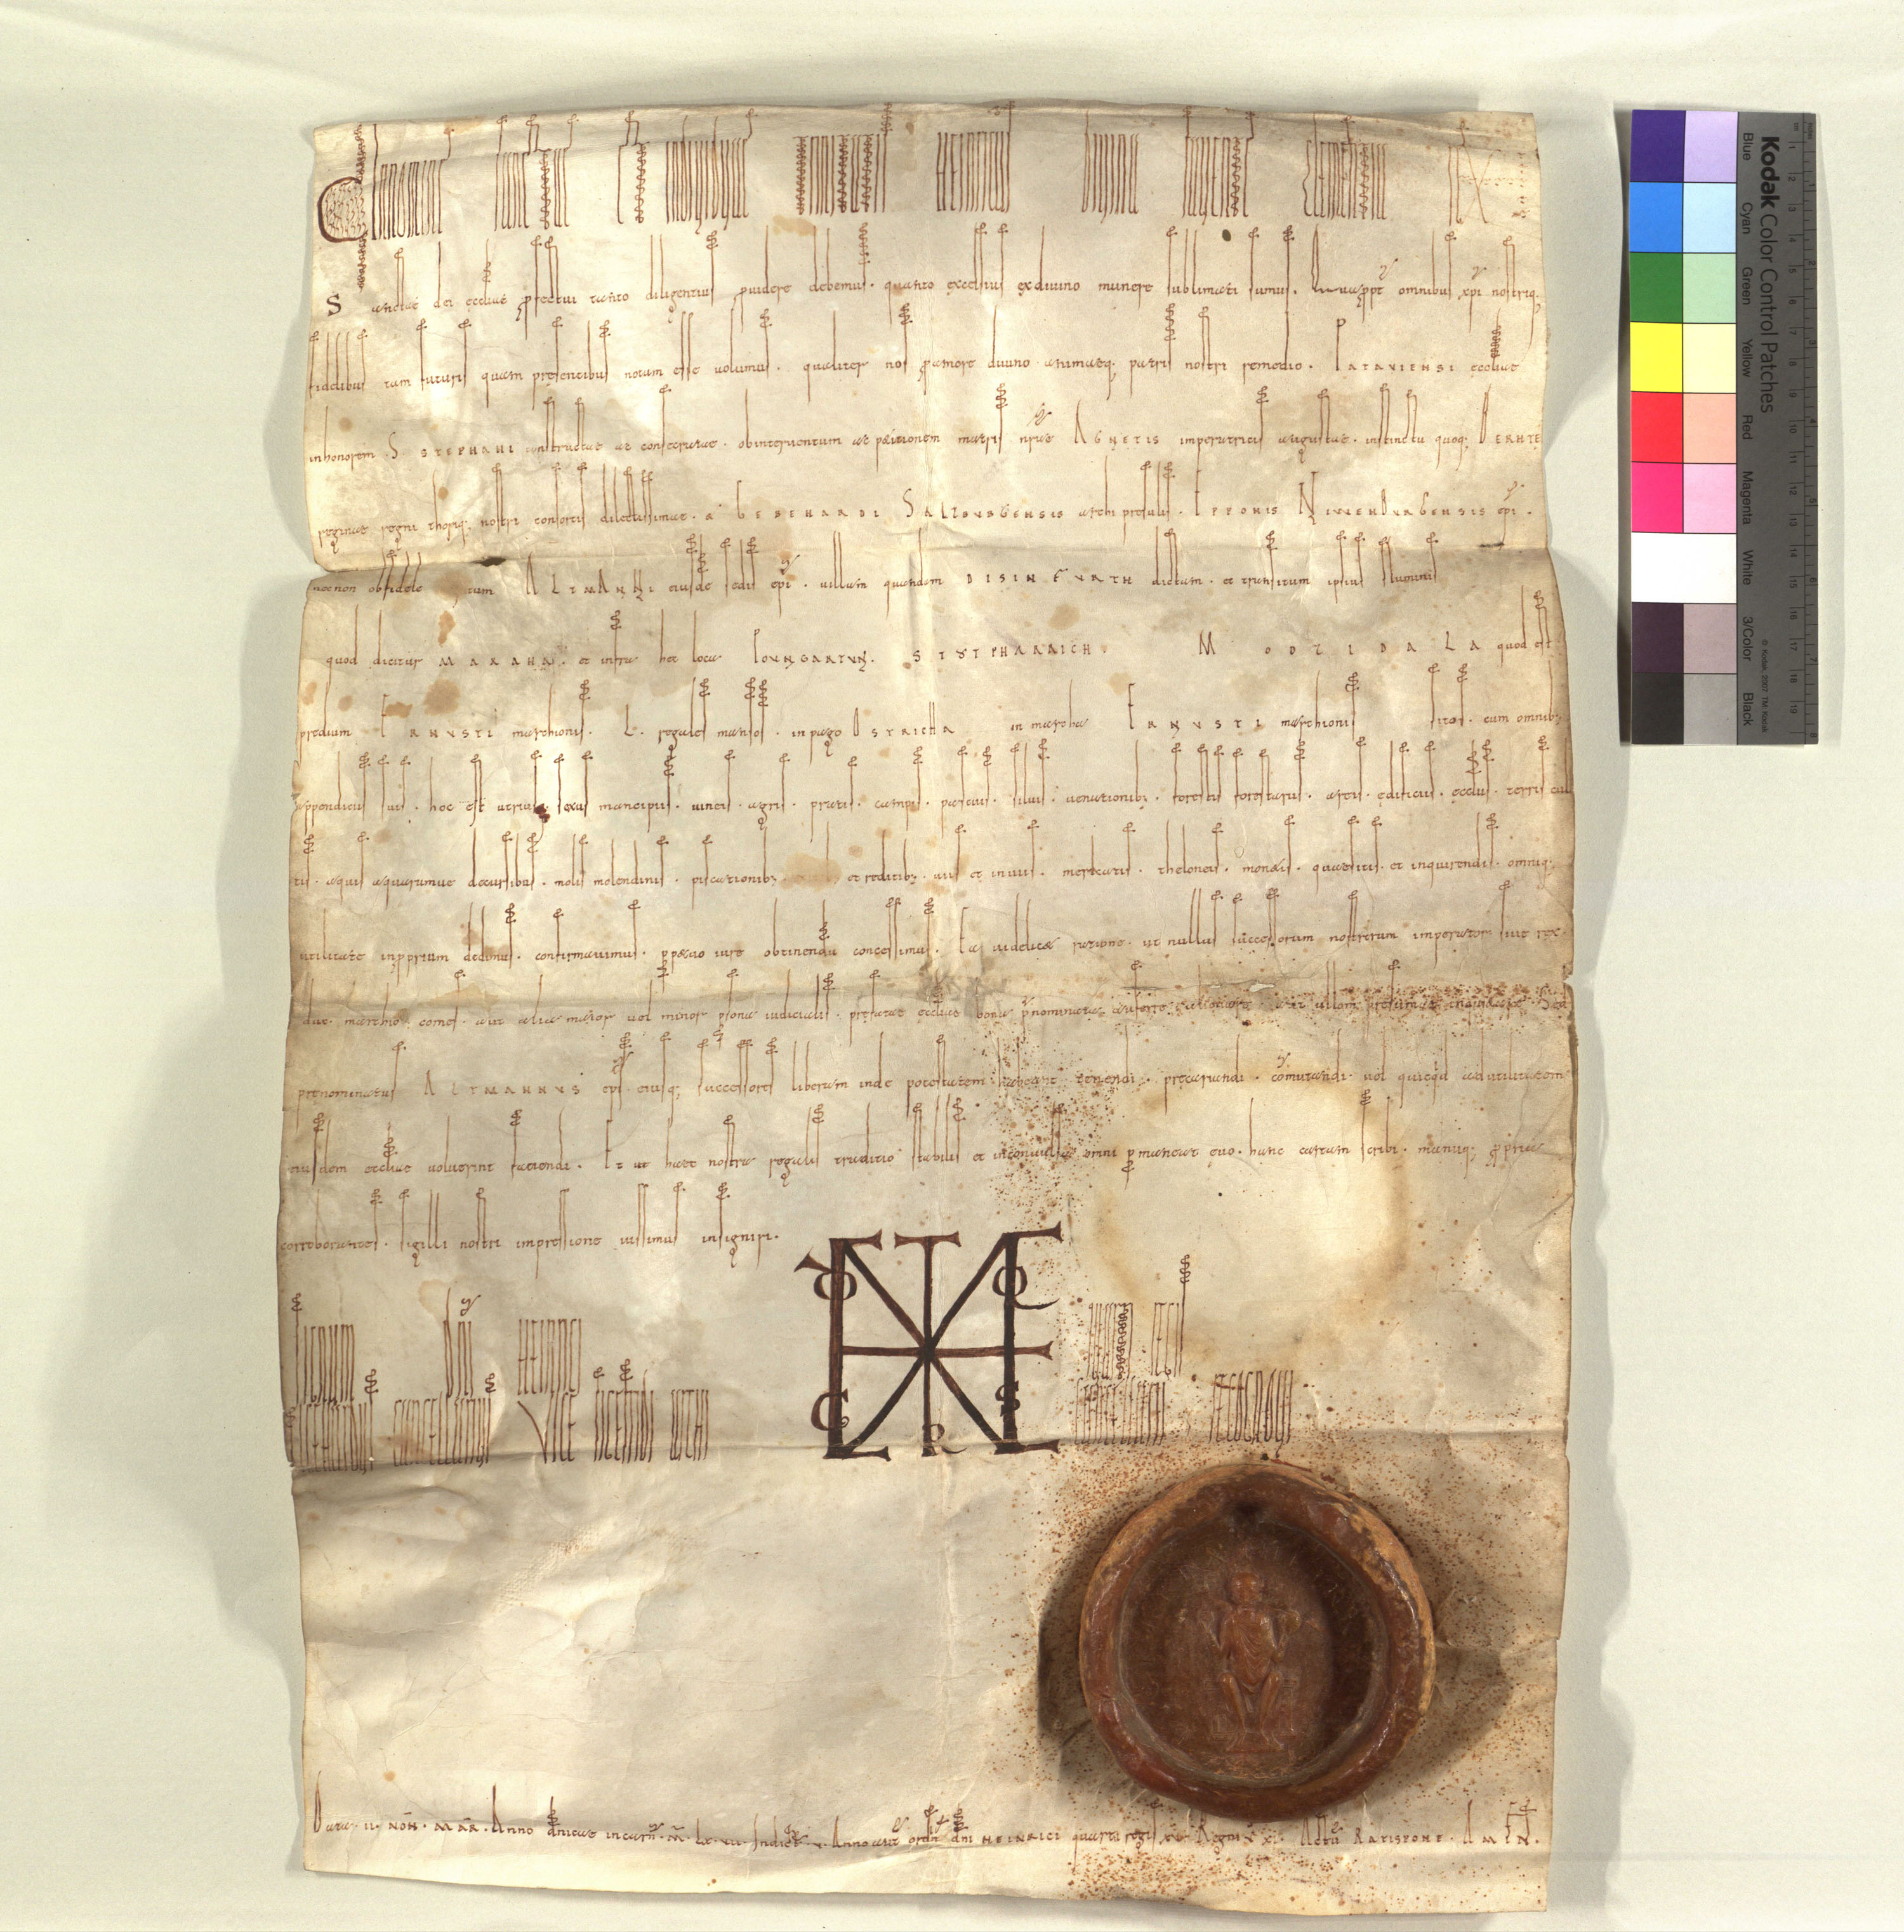 C In nomine sanctae et individuae trinitatis Heinricus divina favente clementia rex
Sanctae dei eccliae profectui tanto diligentius providere debemus. quanto excelsius ex divino munere sublimati sumus. Quappt omnibus xpi nostrisq;
fidelibus tam futuris quam presentibus notum esse volumus. qualiter nos pro amore divino animaeq; patris nostri remedio. PATAVIENSI eccliae
in honorem S STEPHANI constructae ac consecratae. ob interventum ac peticionem matris nrae AGNETIS imperatricis augustae. instinctu quoq; BERHTE
reginae regni thoriq; nostri consortis dilectissimae. a GEBEHARDI SALTZBVRGENSIS archipresulis. EPPONIS NIWENBVRGENSIS epi.
necnon ob fidele ALTMANNI eiusdē sedis epi. villam quandam DISINFVRTH dictam. et transitum ipsius fluminis
quod dicitur MARAHA. et infra hec loca POVNGARTVN. STOTPHARAICH. MODZIDALA quod est
predium ERNVSTI marchionis. L. regales mansos. in pago OSTRICHA in marcha ERNVSTI marchionis sitos. cum omnib;
appendiciis suis. hoc est utriusq; sexus mancipiis. vineis. agris. pratis. campis. pascuis. silvis. venationib;. forestis forestariis. areis. edificiis. eccliis. terris cul
tis. aquis aquarumve decursibus. molis molendinis. piscationib;. et reditib;. viis et inviis. mercatis. theloneis. monetis. quaesitis. et inquirendis. omniq;
utilitate in pprium dedimus. confirmavimus. ppetuo iure obtinenda concessimus. Ea videlicet ratione. ut nullus successorum nostrorum imperator sive rex.
dux. marchio. comes. aut alia maior vel minor psona iudicialis. prefatae eccliae bona pnominata auferre alienare aut ullam presumat Sed
prenominatus ALTMANNVS eps. eiusq; successores liberam inde potestatem habeant tenendi. precariandi. comutandi. vel quicqd ad utilitatem
eiusdem eccliae voluerint faciendi. Et ut haec nostra regalis traditio stabilis et inconvulsa omni pmaneat evo. hanc cartam scribi. manuq; propria
corroborantes. sigilli nostri impressione iussimus insigniri.
Signum dni Heinrici quarti regis
Sigehardus cancellarius vice Sigefridi archi cancellarii recognovi
Data. II. NON. MAR. Anno dnicae incarn. M. LX. VII. Indict. V. Anno aut ordin dni HEINRICI quarti regis Regni XI. Actū RATISPONE. AMEN.